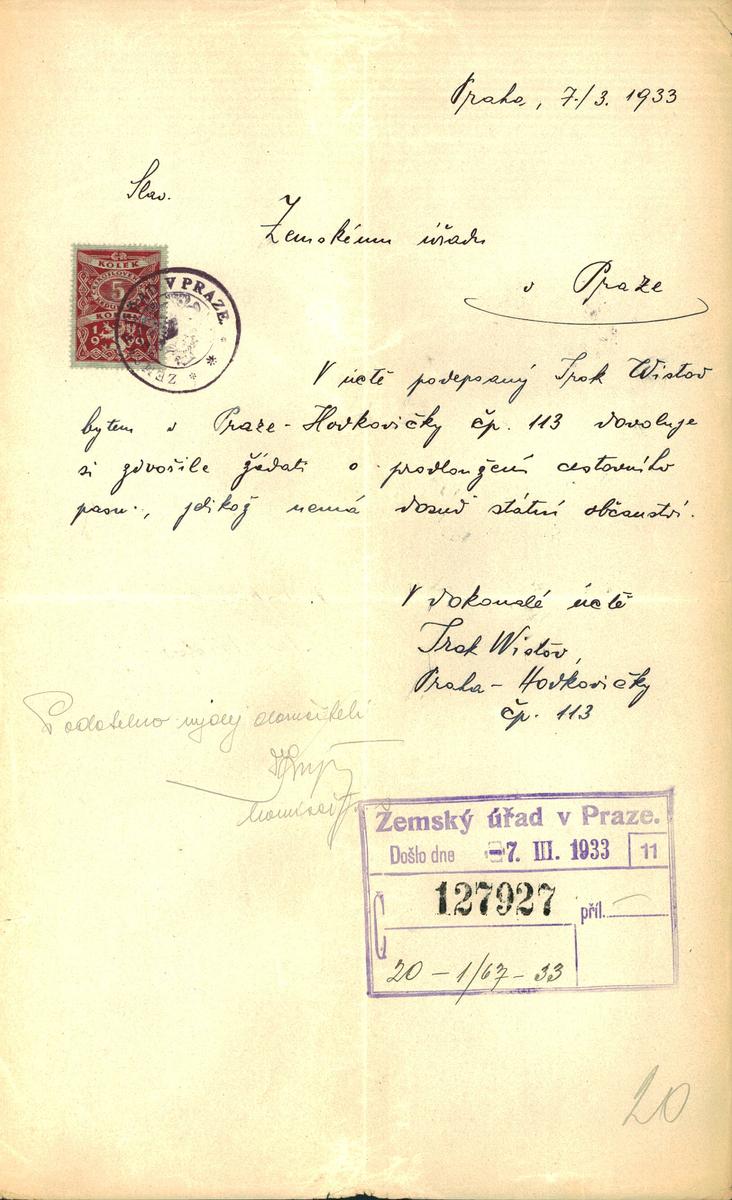 Praha, 7./3. 1933
Slav.
Zemskému úřadu
v Praze
KOLEK
5
1919
V PRAZE.
V úctě podepsaný Isak Wistov
bytem v Praze-Hodkovičky čp. 113 dovoluje
si zdvořile žádati o prodloužení cestovního
pasu, jelikož nemá dosud státní občanství.
V dokonalé úctě
Isak Wistov,
Praha-Hodkovičky
čp. 113
Zemský úřad v Praze.
Došlo dne -7. III. 1933 11
127927 příl. —
20 - 1/67 - 33
20